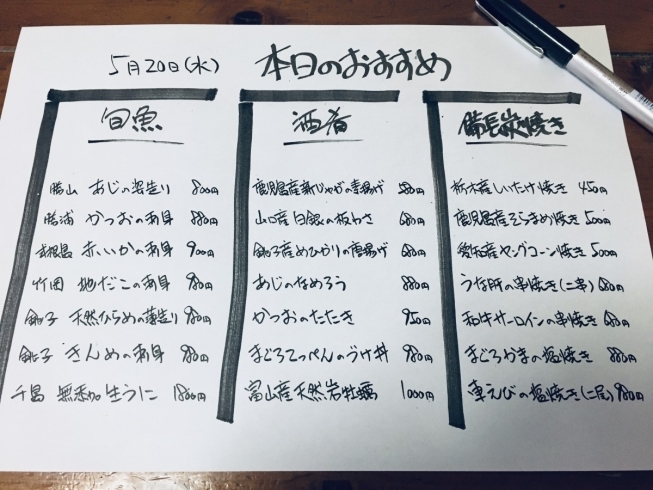 5月20日(水) 本日のおすすめ
旬魚
勝山 あじの姿造り 800円
勝浦 かつおの刺身 880円
式根島 赤いかの刺身 900円
竹岡 地だこの刺身 780円
銚子 天然ひらめの薄造り 980円
銚子 きんめの刺身 980円
千島 無添加生うに 1800円
酒肴
鹿児島産新じゃがの素揚げ 580円
山口産 白銀の板わさ 680円
銚子産めひかりの唐揚げ 680円
あじのなめろう 880円
かつおのたたき 950円
まぐろてっぺんのづけ丼 980円
富山産天然岩牡蠣 1000円
備長炭焼き
栃木産しいたけ焼き 450円
鹿児島産そらまめ焼き 500円
愛知産ヤングコーン焼き 500円
うな肝の串焼き(二串) 680円
和牛サーロインの串焼き 680円
まぐろかまの塩焼き 880円
車えびの塩焼き(二尾) 980円